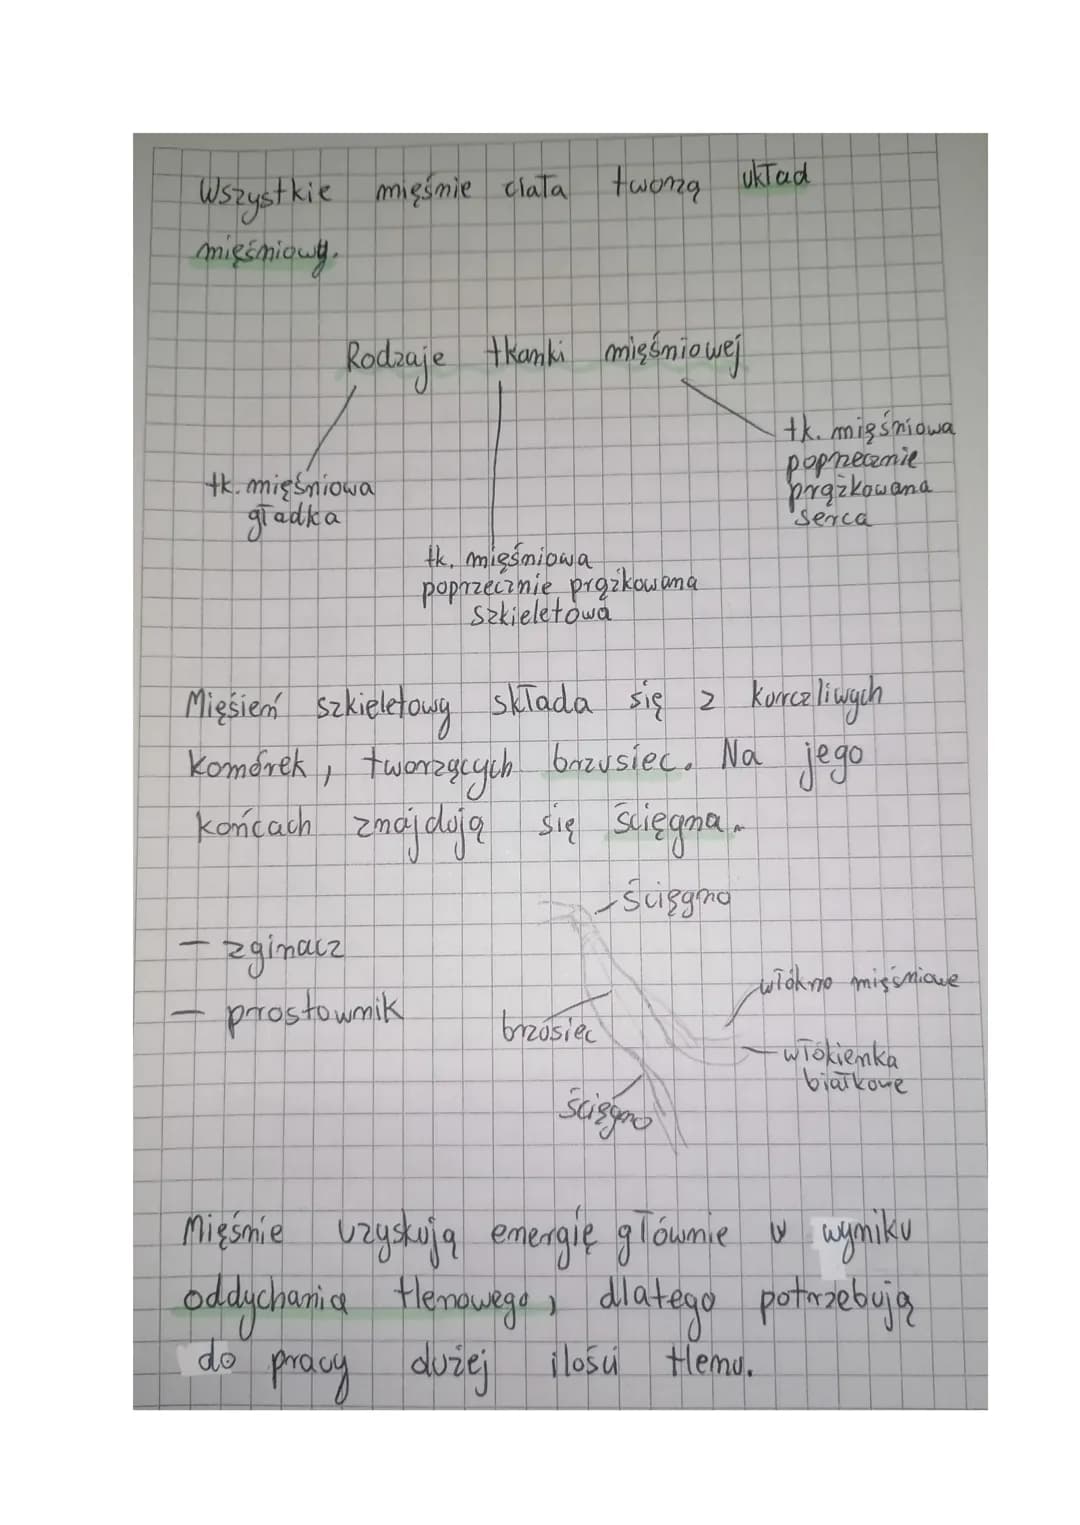 Wszystkie mięśnie ciała tworzą układ
mięśniowy.
Rodzaje tkanki mięśniowej
tk. mięśniowa
poprzecznie
prążkowana
serca
tk. mięśniowa
gładka
tk. mięśniowa
poprzecznie prążkowana
szkieletowa
Mięsień szkieletowy składa się z kurczliwych
komórek, tworzących brzusiec. Na jego
końcach znajdują się ścięgna.
ścięgno
- zginacz
włókno mięśniowe
- prostownik
brzusiec
włókienka
białkowe
ścięgno
Mięśnie uzyskują energię głównie w wyniku
oddychania tlenowego, dlatego potrzebują
do pracy dużej ilości tlenu.